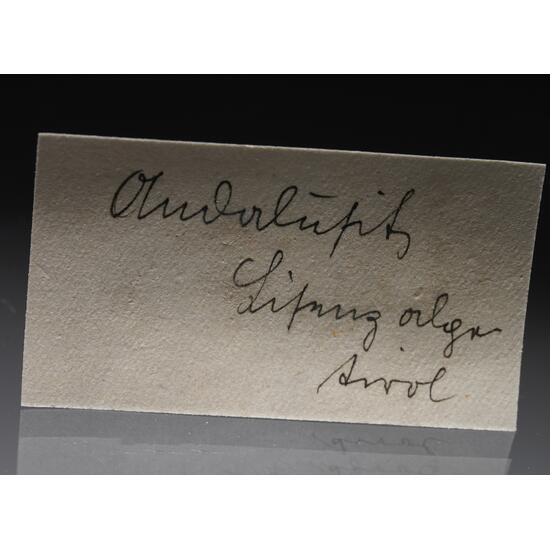 Andalusit
Lisenz alpe
Tirol